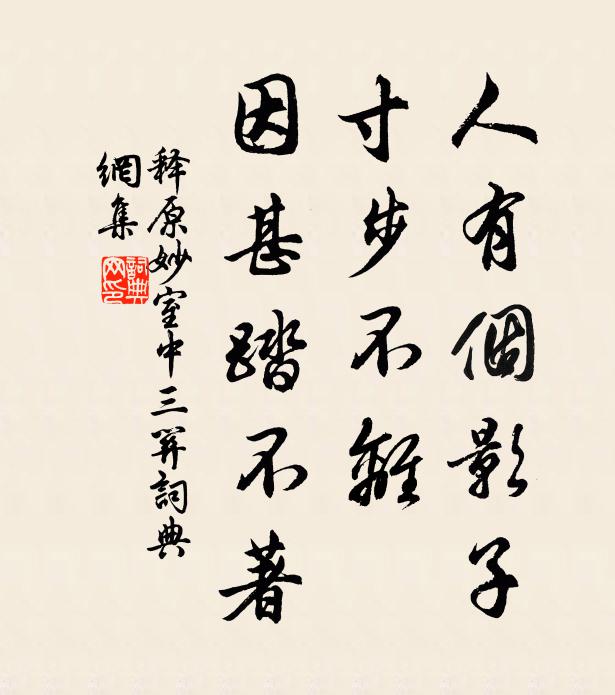 人有個影子
寸步不離
因甚踏不著
释原妙室中三關詞典
網集
詞典網印